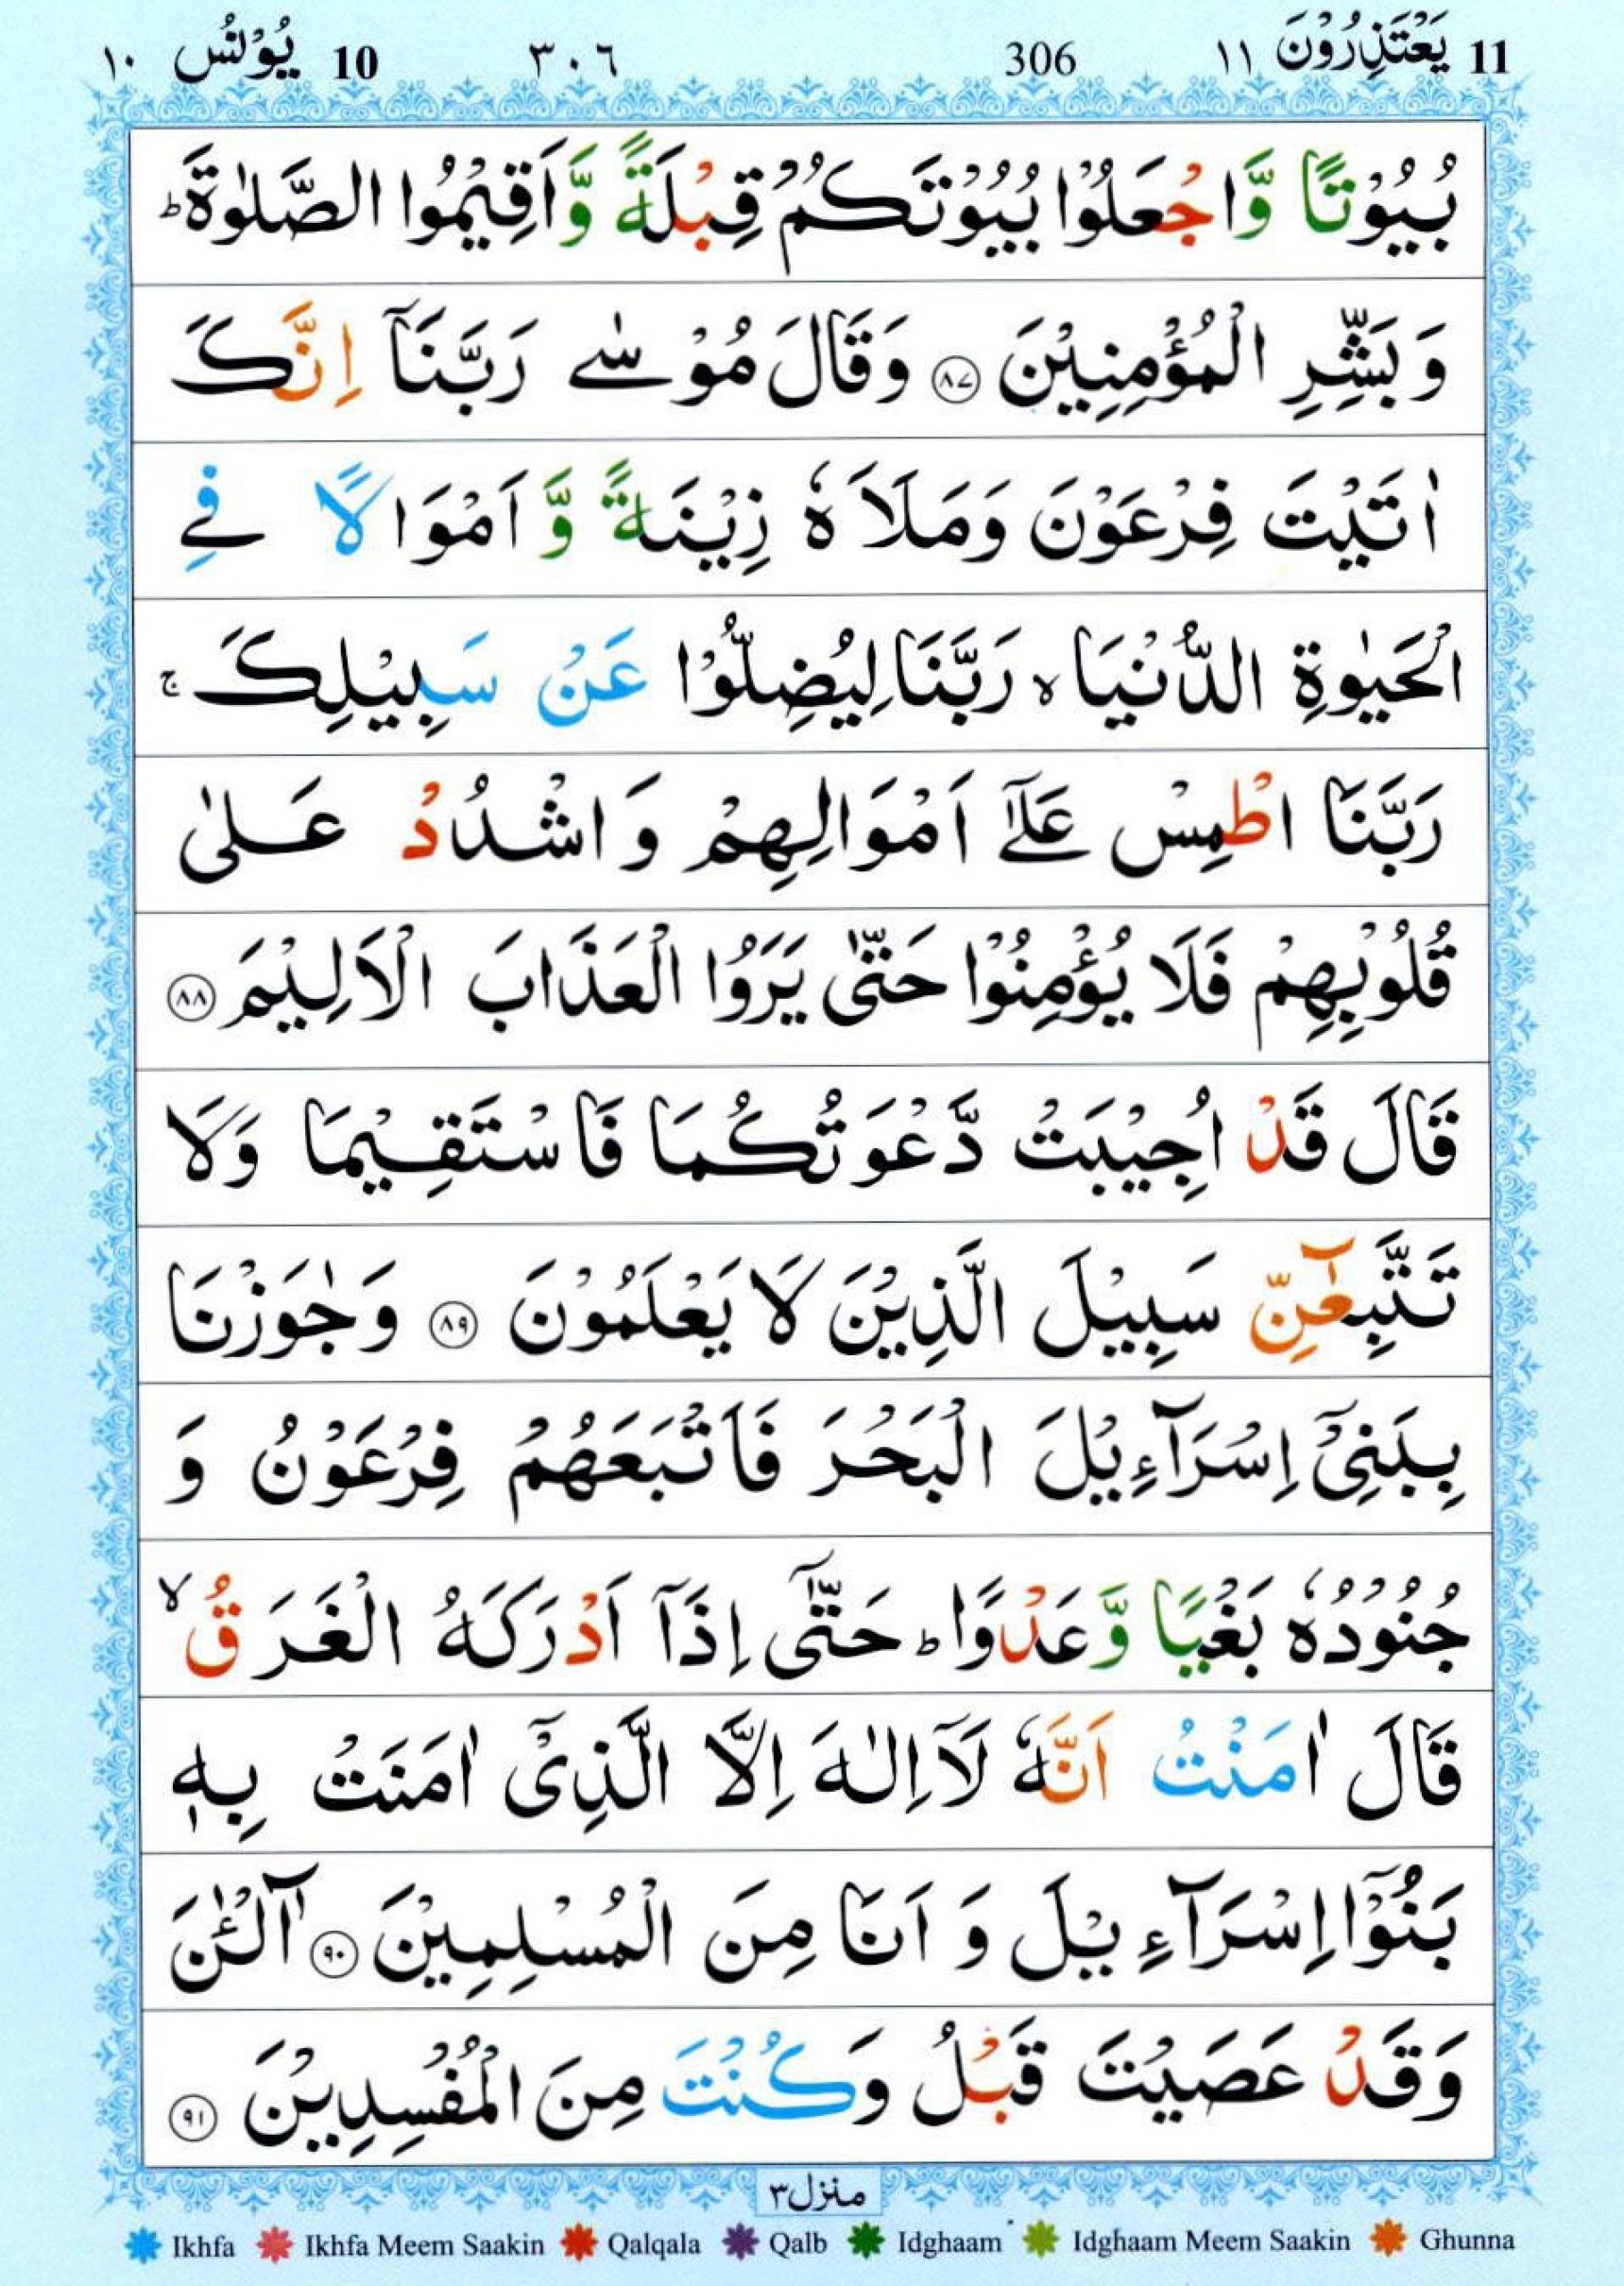 11 يَعْتَذِرُوْنَ ١١ 306 ٣٠٦ 10 يُوْنُس ١٠
بُيُوْتًا وَّاجْعَلُوْا بُيُوْتَكُمْ قِبْلَةً وَّاَقِيْمُوا الصَّلٰوةَ ؕ
وَ بَشِّرِ الْمُؤْمِنِيْنَ ۝٨٧ وَقَالَ مُوْسٰے رَبَّنَاۤ اِنَّكَ
اٰتَيْتَ فِرْعَوْنَ وَمَلَاَهٗ زِيْنَةً وَّ اَمْوَالًا فِے
الْحَيٰوةِ الدُّنْيَا ۙ رَبَّنَا لِيُضِلُّوْا عَنْ سَبِيْلِكَ ۚ
رَبَّنَا اطْمِسْ عَلٰٓے اَمْوَالِهِمْ وَ اشْدُدْ عَلٰى
قُلُوْبِهِمْ فَلَا يُؤْمِنُوْا حَتّٰى يَرَوُا الْعَذَابَ الْاَلِيْمَ ۝٨٨
قَالَ قَدْ اُجِيْبَتْ دَّعْوَتُكُمَا فَاسْتَقِيْمَا وَلَا
تَتَّبِعٰٓنِّ سَبِيْلَ الَّذِيْنَ لَا يَعْلَمُوْنَ ۝٨٩ وَجٰوَزْنَا
بِبَنِيْۤ اِسْرَآءِيْلَ الْبَحْرَ فَاَتْبَعَهُمْ فِرْعَوْنُ وَ
جُنُوْدُهٗ بَغْيًا وَّعَدْوًا ؕ حَتّٰۤى اِذَاۤ اَدْرَكَهُ الْغَرَقُ ۙ
قَالَ اٰمَنْتُ اَنَّهٗ لَاۤ اِلٰهَ اِلَّا الَّذِيْۤ اٰمَنَتْ بِهٖ
بَنُوْۤا اِسْرَآءِيْلَ وَ اَنَا مِنَ الْمُسْلِمِيْنَ ۝٩٠ آٰلْـٰٔنَ
وَقَدْ عَصَيْتَ قَبْلُ وَكُنْتَ مِنَ الْمُفْسِدِيْنَ ۝٩١
منزل ٣
Ikhfa Ikhfa Meem Saakin Qalqala Qalb Idghaam Idghaam Meem Saakin Ghunna